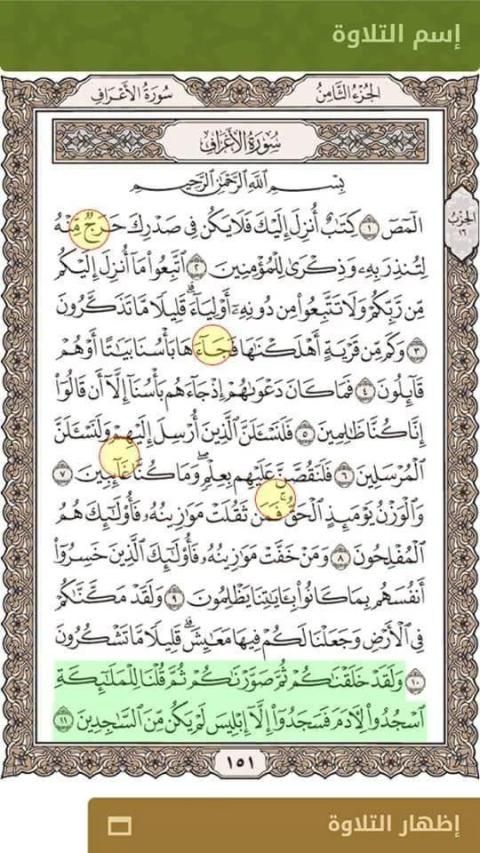 إسم التلاوة
الجزء الثامن
سورة الأعراف
سُورَةُ الأَعْرَافِ
بِسْمِ اللَّهِ الرَّحْمَٰنِ الرَّحِيمِ
الٓمٓصٓ ١ كِتَٰبٌ أُنزِلَ إِلَيْكَ فَلَا يَكُن فِى صَدْرِكَ حَرَجٌ مِّنْهُ
الحزب ١٦
لِتُنذِرَ بِهِۦ وَذِكْرَىٰ لِلْمُؤْمِنِينَ ٢ ٱتَّبِعُوا۟ مَآ أُنزِلَ إِلَيْكُم
مِّن رَّبِّكُمْ وَلَا تَتَّبِعُوا۟ مِن دُونِهِۦٓ أَوْلِيَآءَ ۗ قَلِيلًا مَّا تَذَكَّرُونَ
٣ وَكَم مِّن قَرْيَةٍ أَهْلَكْنَٰهَا فَجَآءَهَا بَأْسُنَا بَيَٰتًا أَوْ هُمْ
قَآئِلُونَ ٤ فَمَا كَانَ دَعْوَىٰهُمْ إِذْ جَآءَهُم بَأْسُنَآ إِلَّآ أَن قَالُوٓا۟
إِنَّا كُنَّا ظَٰلِمِينَ ٥ فَلَنَسْـَٔلَنَّ ٱلَّذِينَ أُرْسِلَ إِلَيْهِمْ وَلَنَسْـَٔلَنَّ
ٱلْمُرْسَلِينَ ٦ فَلَنَقُصَّنَّ عَلَيْهِم بِعِلْمٍ ۖ وَمَا كُنَّا غَآئِبِينَ ٧
وَٱلْوَزْنُ يَوْمَئِذٍ ٱلْحَقُّ ۚ فَمَن ثَقُلَتْ مَوَٰزِينُهُۥ فَأُو۟لَٰٓئِكَ هُمُ
ٱلْمُفْلِحُونَ ٨ وَمَنْ خَفَّتْ مَوَٰزِينُهُۥ فَأُو۟لَٰٓئِكَ ٱلَّذِينَ خَسِرُوٓا۟
أَنفُسَهُم بِمَا كَانُوا۟ بِـَٔايَٰتِنَا يَظْلِمُونَ ٩ وَلَقَدْ مَكَّنَّٰكُمْ
فِى ٱلْأَرْضِ وَجَعَلْنَا لَكُمْ فِيهَا مَعَٰيِشَ ۗ قَلِيلًا مَّا تَشْكُرُونَ
١٠ وَلَقَدْ خَلَقْنَٰكُمْ ثُمَّ صَوَّرْنَٰكُمْ ثُمَّ قُلْنَا لِلْمَلَٰٓئِكَةِ
ٱسْجُدُوا۟ لِءَادَمَ فَسَجَدُوٓا۟ إِلَّآ إِبْلِيسَ لَمْ يَكُن مِّنَ ٱلسَّٰجِدِينَ ١١
١٥١
إظهار التلاوة